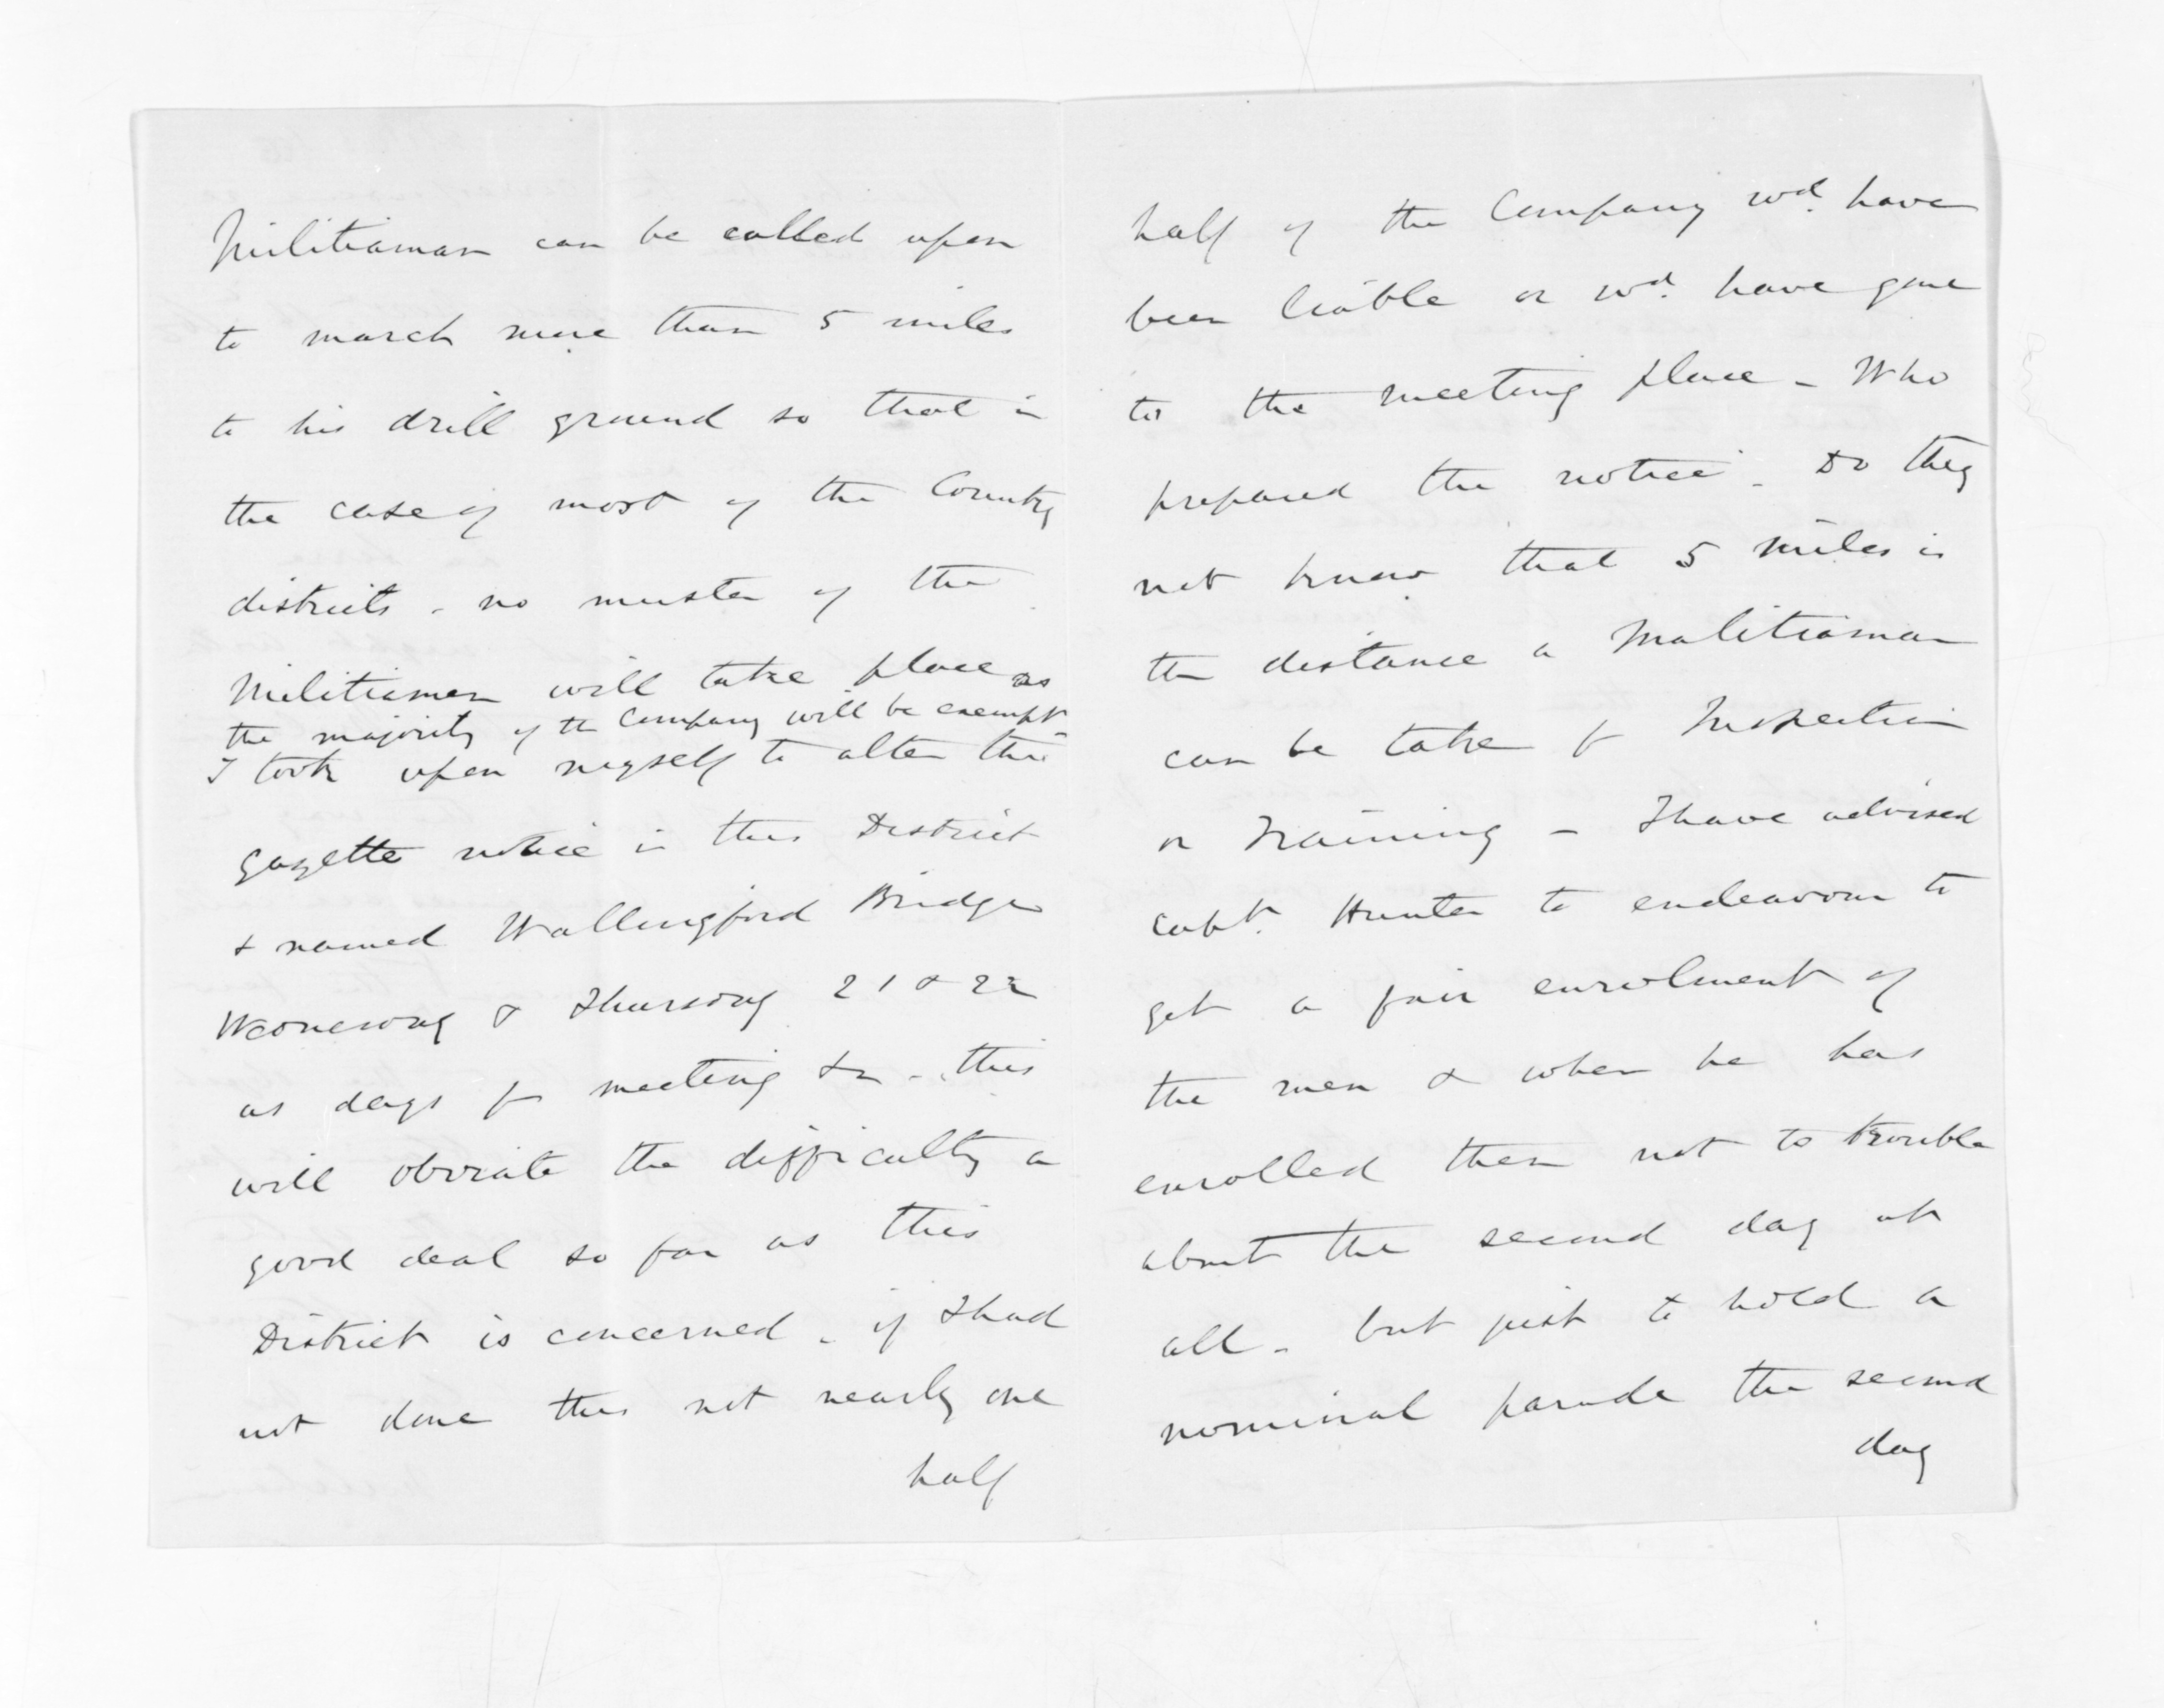 Militiaman can be called upon
to march more than 5 miles
to his drill ground so that in
the case of most of the Country
districts - no muster of the
Militiamen will take place as
the majority of the Company will be exempt
I took upon myself to alter the
gazette notice in this District
& named Wallingford Bridge
Wednesday & Thursday 21 & 22
as days for meeting &c - this
will obviate the difficulty a
good deal so far as this
District is concerned - if I had
not done this not nearly one
half
half of the Company wd. have
been liable or wd. have gone
to the meeting place - Who
prepared the notice - Do they
not know that 5 miles is
the distance a Malitiaman
can be take for Inspection
or Training - I have advised
Capt. Hunter to endeavour to
get a fair enrolment of
the men & when he has
enrolled them not to trouble
about the second day at
all - but just to hold a
nominal parade the second
day